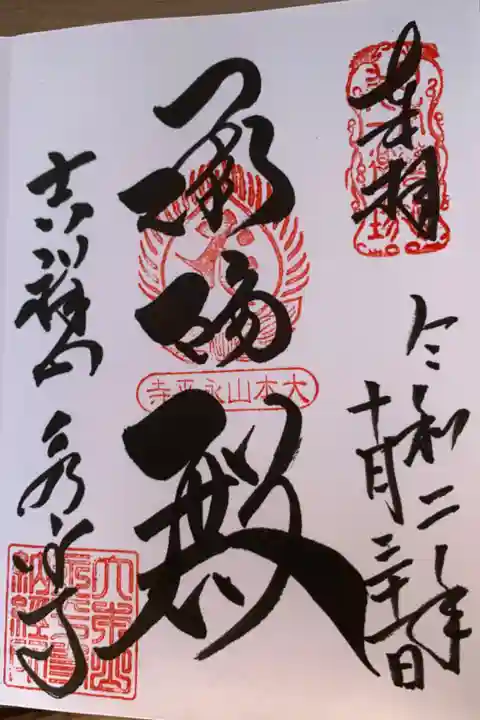 奉拝
令和二年
十月三十日
承陽殿
大本山永平寺
吉祥山 永平寺